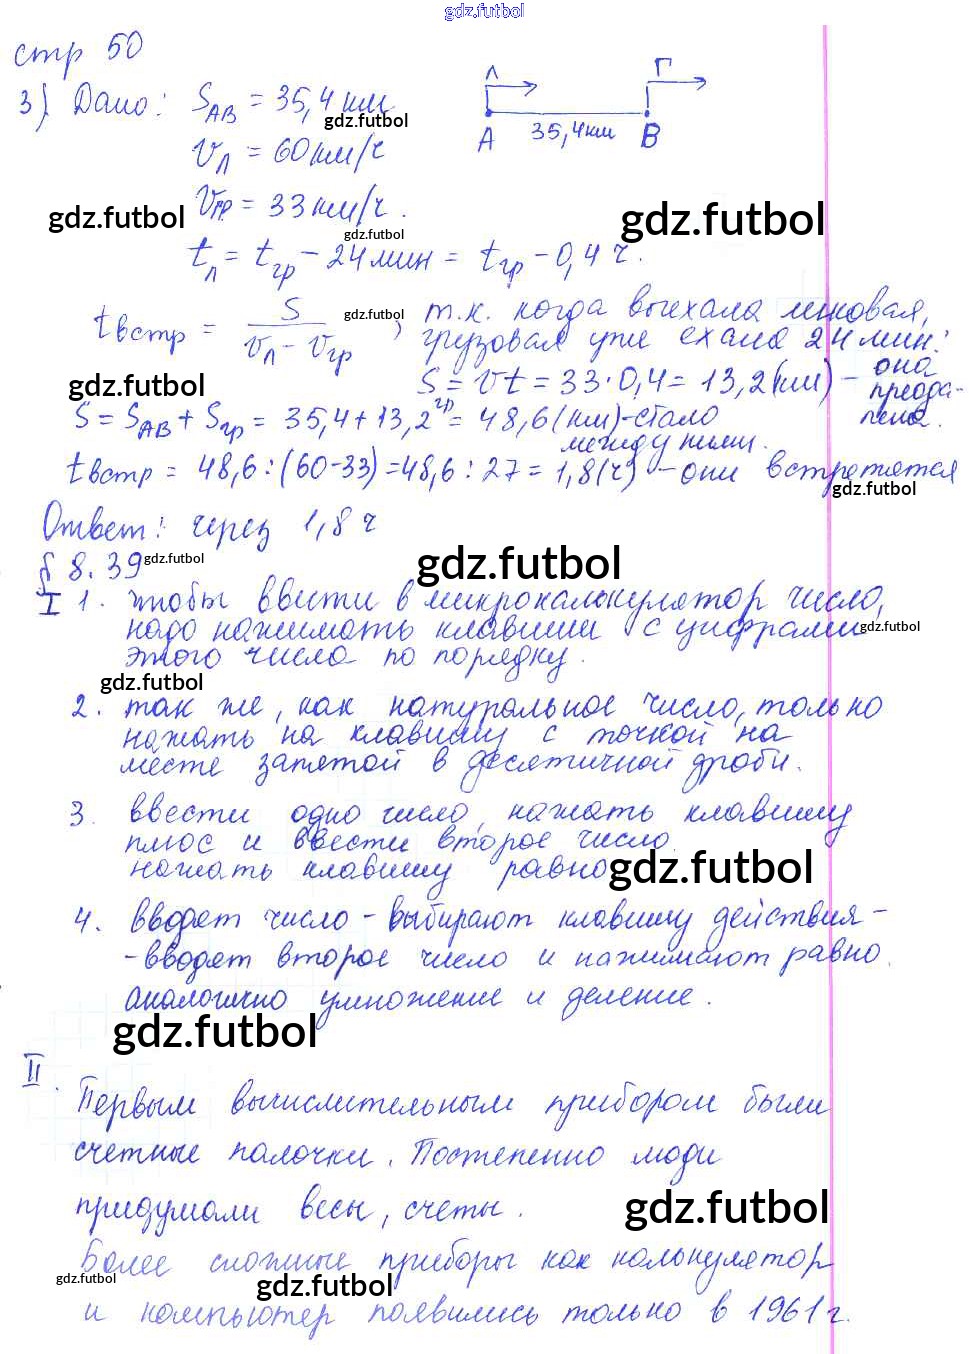 gdz.futbol
стр 50
3) Дано: S_AB = 35,4 км
gdz.futbol
Л Г
A 35,4км B
v_Л = 60км/ч
v_гр = 33км/ч.
gdz.futbol gdz.futbol
gdz.futbol
t_л = t_гр - 24 мин = t_гр - 0,4 ч.
t встр = S / (v_Л - v_гр), т.к. когда выехала легковая,
gdz.futbol
грузовая уже ехала 24 мин:
S_гр = vt = 33·0,4 = 13,2(км) - она преодолела.
gdz.futbol
S = S_AB + S_гр = 35,4+13,2 = 48,6(км)-стало
между ними.
t встр = 48,6:(60-33)=48,6:27= 1,8(ч) - они встретятся
gdz.futbol
Ответ: через 1,8 ч
§ 8.39
gdz.futbol gdz.futbol
I 1. чтобы ввести в микрокалькулятор число,
надо нажимать клавиши с цифрами
gdz.futbol
этого числа по порядку.
gdz.futbol
2. так же, как натуральное число, только
нажать на клавишу с точкой на
месте запятой в десятичной дроби.
3. ввести одно число, нажать клавишу
плюс и ввести второе число.
нажать клавишу равно
gdz.futbol
4. вводят число - выбирают клавишу действия -
-вводят второе число и нажимают равно.
аналогично умножение и деление.
gdz.futbol
II.
Первым вычислительным прибором были
счетные палочки. Постепенно люди
придумали весы, счеты.
gdz.futbol
Более сложные приборы как калькулятор
gdz.futbol gdz.futbol
и компьютер появились только в 1961г.